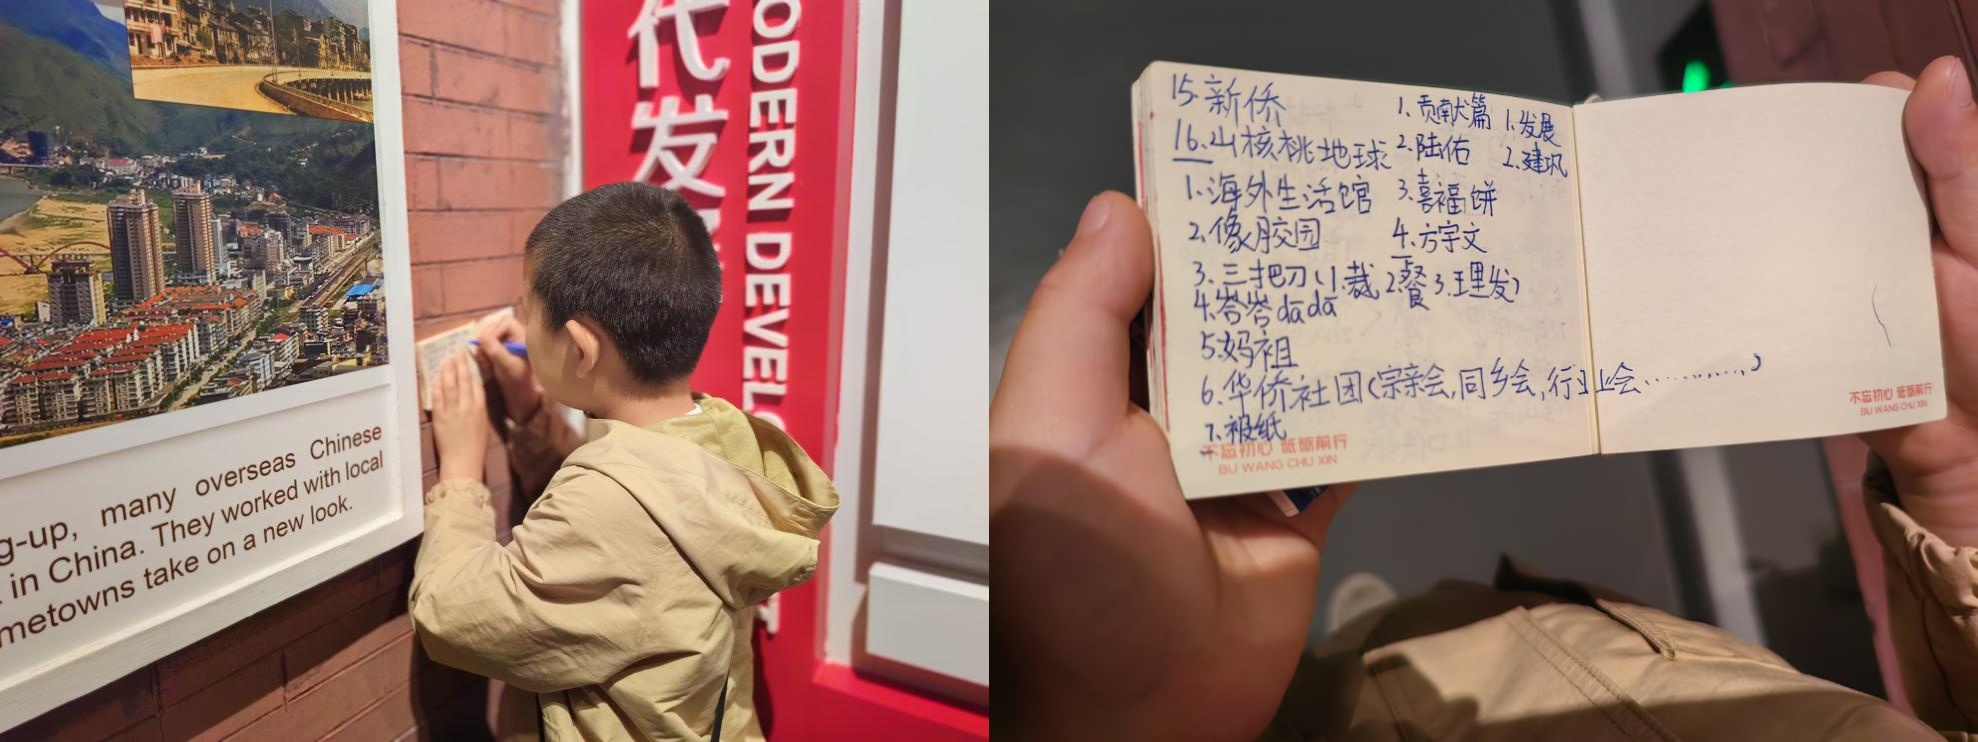 代发
ODERN DEVELO
T
g-up, many overseas Chinese
in China. They worked with local
metowns take on a new look.
15.新侨
16.山核桃地球
1.海外生活馆
2.像胶园
3.三把刀(1.裁 2.餐 3.理发)
4.岺岺dada
5.妈祖
6.华侨社团(宗亲会,同乡会,行业会…………,
7.被纸
1.贡献篇
2.陆佑
3.喜福饼
4.方宇文
1.发展
2.建巩
不忘初心 砥砺前行
BU WANG CHU XIN
不忘初心 砥砺前行
BU WANG CHU XIN